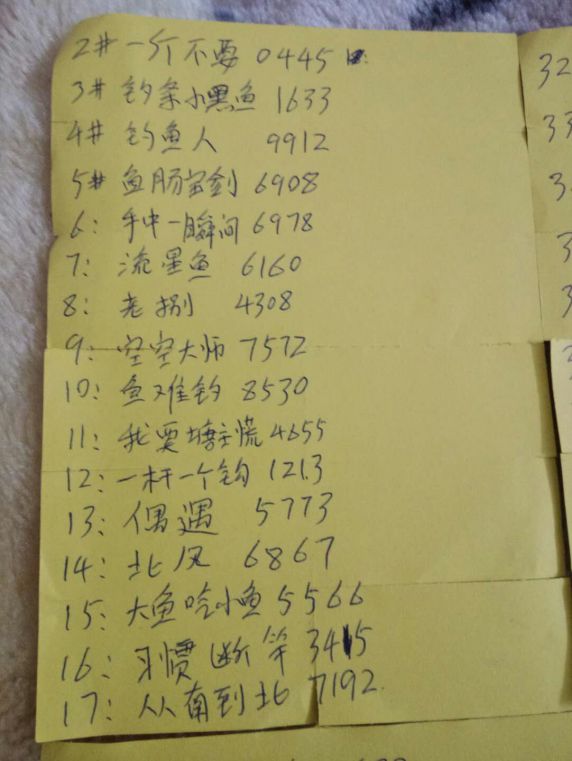 2# 一个不要 0445
3# 钓条小黑鱼 1633
4# 钓鱼人 9912
5# 鱼肠宝剑 6908
6: 手中一瞬间 6978
7: 流星鱼 6160
8: 老捌 4308
9: 空空大师 7572
10: 鱼难钓 8530
11: 我要塘主慌 4655
12: 一杆一个钩 1213
13: 偶遇 5773
14: 北风 6867
15: 大鱼吃小鱼 5566
16: 习惯断竿 3415
17: 从南到北 7192
32
33